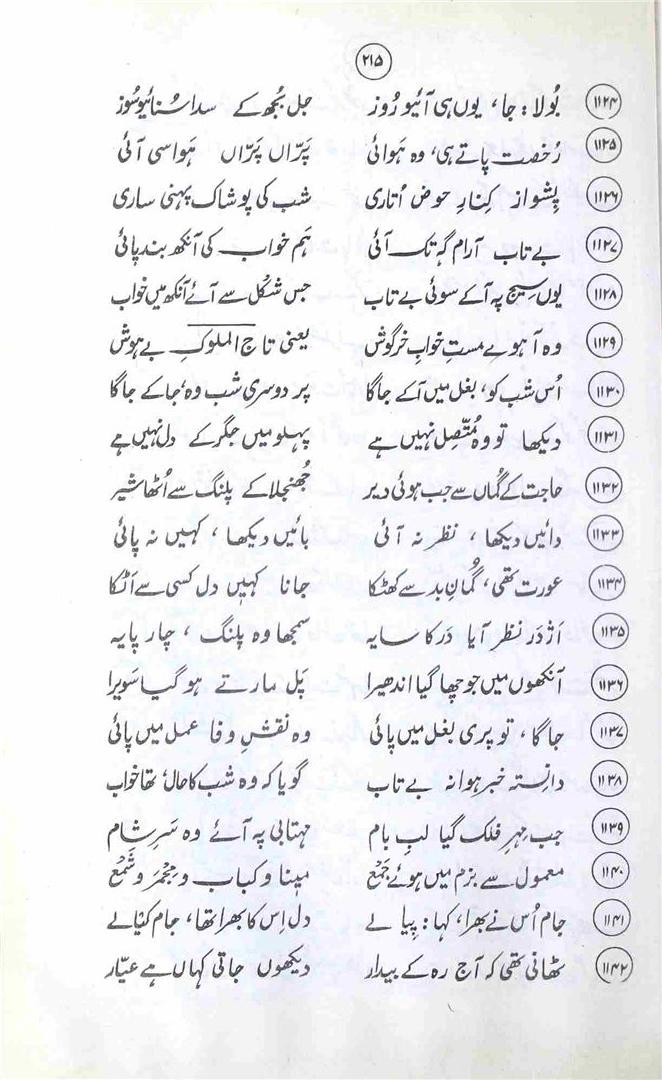 ۲۱۵
۱۱۲۴ بُولا: جا، یوں ہی آئیو رُوز جل بُجھ کے سدا سُنائیو سُوز
۱۱۲۵ رُخصت پاتے ہی، وہ ہَوائی پَرّاں پَرّاں ہَوا سی آئی
۱۱۲۶ پِشواز کِنارِ حوض اُتاری شب کی پوشاک پہنی ساری
۱۱۲۷ بے تاب آرام گہ تک آئی ہَم خواب کی آنکھ بند پائی
۱۱۲۸ یوں سیج پہ آ کے سوئی بے تاب جس شکل سے آئے آنکھ میں خواب
۱۱۲۹ وہ آہوے مستِ خوابِ خرگوش یعنی تاج الملوکِ بے ہوش
۱۱۳۰ اُس شب کو، بغل میں آ کے جاگا پر دوسری شب وہ، جا کے جاگا
۱۱۳۱ دیکھا تو وہ مُتّصِل نہیں ہے پہلو میں جگر کے دل نہیں ہے
۱۱۳۲ حاجت کے گُماں سے جب ہوئی دیر جُھنجلا کے پلنگ سے اُٹھا شیر
۱۱۳۳ دائیں دیکھا، نظر نہ آئی بائیں دیکھا، کہیں نہ پائی
۱۱۳۴ عورت تھی، گُمانِ بد سے کھٹکا جانا کہیں دل کسی سے اَٹکا
۱۱۳۵ اَژدَر نظر آیا دَر کا سایہ سمجھا وہ پلنگ، چار پایہ
۱۱۳۶ آنکھوں میں جو چھا گیا اندھیرا پَل مارتے ہو گیا سَویرا
۱۱۳۷ جاگا، تو پری بغل میں پائی وہ نقشِ وفا عمل میں پائی
۱۱۳۸ دانِستہ خبر ہوا نہ بے تاب گویا کہ وہ شب کا حال، تھا خواب
۱۱۳۹ جب مِہرِ فلک گیا لبِ بام مہتابی پہ آئے وہ سَرِ شام
۱۱۴۰ معمول سے بزم میں ہوئے جَمْع مِینا و کباب و مِجْمَر و شَمْع
۱۱۴۱ جام اُس نے بھرا، کہا: پِیا لے دل اِس کا بھرا تھا، جام کیا لے
۱۱۴۲ ٹھانی تھی کہ آج رہ کے بیدار دیکھوں جاتی کہاں ہے عیّار